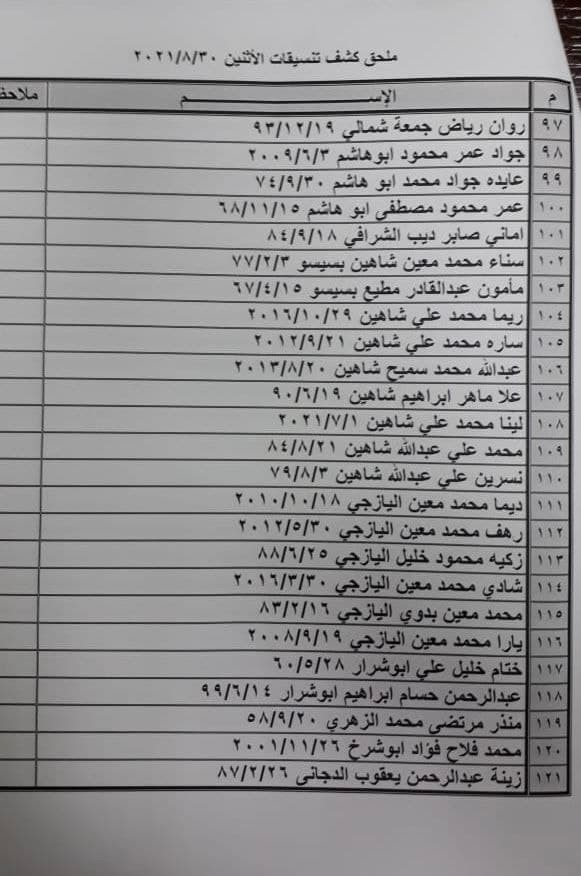 ملحق كشف تنسيقات الأثنين ٢٠٢١/٨/٣٠
م الإســــــم ملاحظ
٩٧ روان رياض جمعة شمالي ٩٣/١٢/١٩
٩٨ جواد عمر محمود ابوهاشم ٢٠٠٩/٦/٣
٩٩ عايده جواد محمد ابو هاشم ٧٤/٩/٣٠
١٠٠ عمر محمود مصطفى ابو هاشم ٦٨/١١/١٥
١٠١ اماني صابر ديب الشرافي ٨٤/٩/١٨
١٠٢ سناء محمد معين شاهين بسيسو ٧٧/٢/٣
١٠٣ مأمون عبدالقادر مطيع بسيسو ٦٧/٤/١٥
١٠٤ ريما محمد علي شاهين ٢٠١٦/١٠/٢٩
١٠٥ ساره محمد علي شاهين ٢٠١٢/٩/٢١
١٠٦ عبدالله محمد سميح شاهين ٢٠١٣/٨/٢٠
١٠٧ علا ماهر ابراهيم شاهين ٩٠/٦/١٩
١٠٨ لينا محمد علي شاهين ٢٠٢١/٧/١
١٠٩ محمد علي عبدالله شاهين ٨٤/٨/٢١
١١٠ نسرين علي عبدالله شاهين ٧٩/٨/٣
١١١ ديما محمد معين اليازجي ٢٠١٠/١٠/١٨
١١٢ رهف محمد معين اليازجي ٢٠١٢/٥/٣٠
١١٣ زكيه محمود خليل اليازجي ٨٨/٦/٢٥
١١٤ شادي محمد معين اليازجي ٢٠١٦/٣/٣٠
١١٥ محمد معين بدوي اليازجي ٨٣/٢/١٦
١١٦ يارا محمد معين اليازجي ٢٠٠٨/٩/١٩
١١٧ ختام خليل علي ابوشرار ٦٠/٥/٢٨
١١٨ عبدالرحمن حسام ابراهيم ابوشرار ٩٩/٦/١٤
١١٩ منذر مرتضى محمد الزهري ٥٨/٩/٢٠
١٢٠ محمد فلاح فؤاد ابوشرخ ٢٠٠١/١١/٢٦
١٢١ زينة عبدالرحمن يعقوب الدجانى ٨٧/٢/٢٦